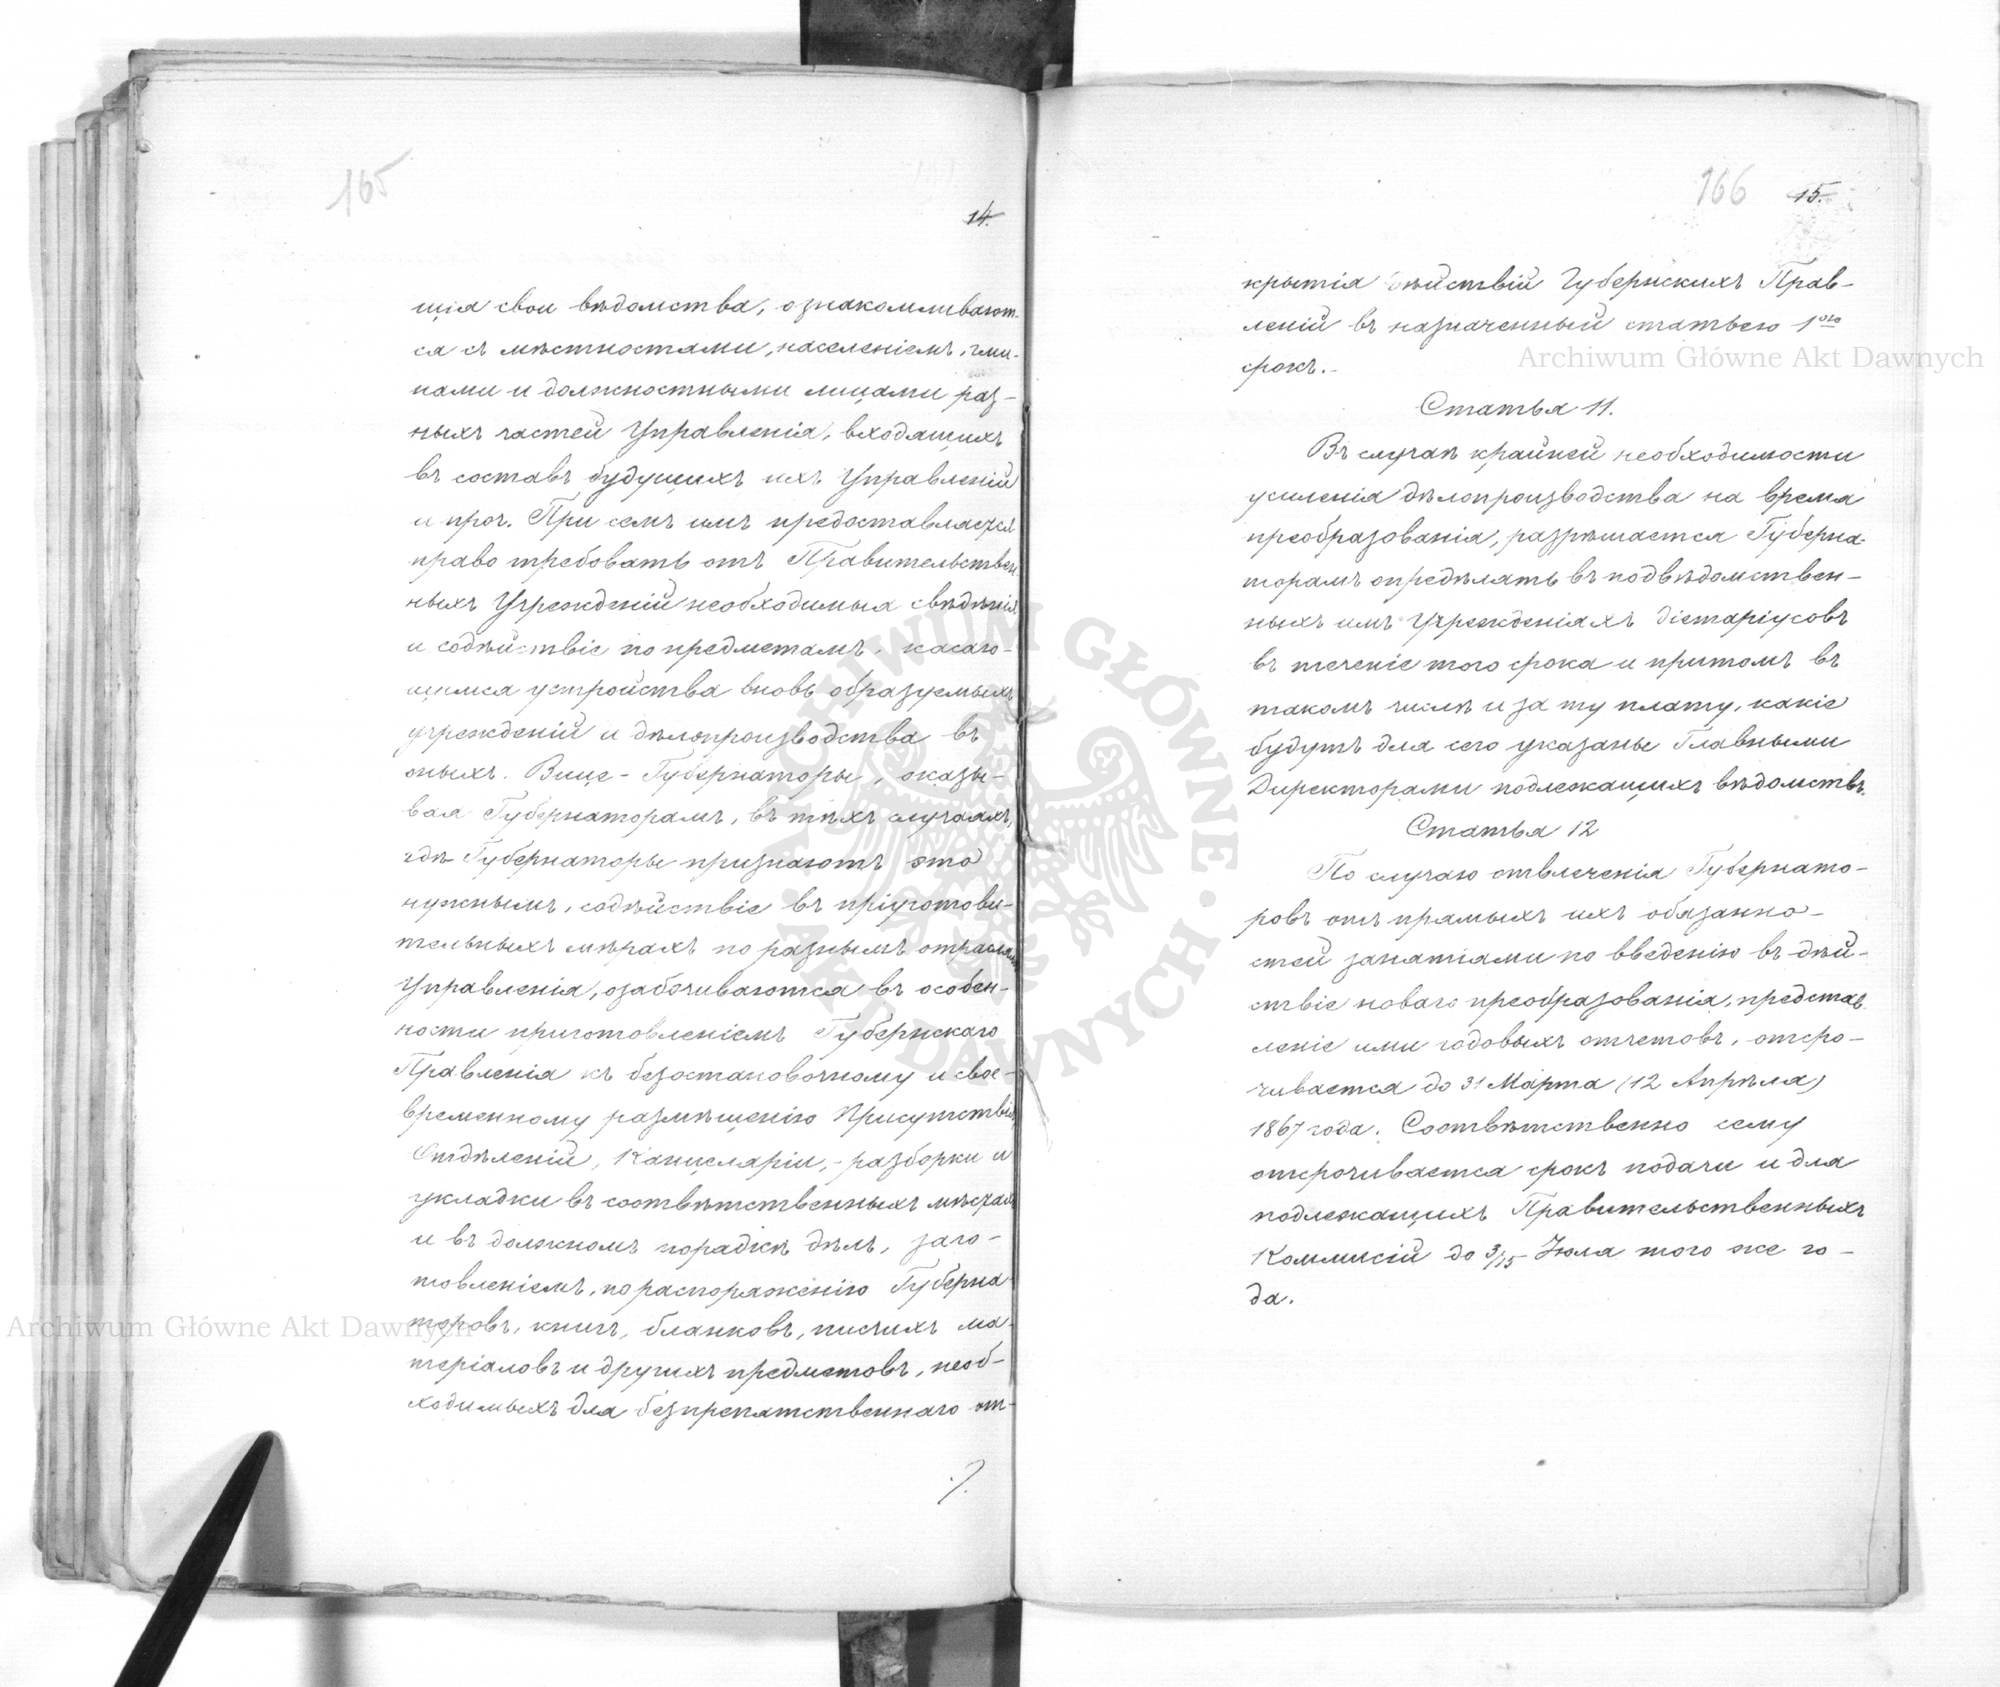 165
14.
щія свои вѣдомства, ознакомливают-
ся съ мѣстностями, населеніемъ, гми-
нами и должностными лицами раз-
ныхъ частей Управленія, входящихъ
въ составъ будущихъ ихъ Управленій
и проч. При семъ имъ предоставляется
право требовать отъ Правительствен
ныхъ Учрежденій необходимыя свѣдѣнія
и содѣйствіе по предметамъ, касаю-
щимся устройства вновь образуемыхъ
учрежденій и дѣлопроизводства въ
оныхъ. Вице-Губернаторы, оказы-
вая Губернаторамъ, въ тѣхъ случаяхъ,
гдѣ Губернаторы признаютъ это
нужнымъ, содѣйствіе въ пріуготови-
тельныхъ мѣрахъ по разнымъ отраслямъ
Управленія, озабочиваются въ особен-
ности приготовленіемъ Губернскаго
Правленія къ безостановочному и свое-
временному размѣщенію Присутствія,
Отдѣленій, Канцеляріи, - разборки и
укладки въ соотвѣтственныхъ мѣстахъ
и въ должномъ порядкѣ дѣлъ, заго-
товленіемъ, по распоряженію Губерна
торовъ, книгъ, бланковъ, писчихъ ма-
теріаловъ и другихъ предметовъ, необ-
ходимыхъ для безпрепятственнаго от-
166 15.
крытія дѣйствій Губернскихъ Прав-
леній въ назначенный статьею 1ою
срокъ.-
Статья 11.
Въ случаѣ крайней необходимости
усиленія дѣлопроизводства на время
преобразованія, разрѣшается Губерна-
торамъ опредѣлять въ подвѣдомствен-
ныхъ имъ Учрежденіяхъ діетаріусовъ
въ теченіе того срока и притомъ въ
такомъ числѣ и за ту плату, какіе
будутъ для сего указаны Главными
Директорами подлежащихъ вѣдомствъ.
Статья 12
По случаю отвлеченія Губернато-
ровъ отъ прямыхъ ихъ обязанно-
стей занятіями по введенію въ дѣй-
ствіе новаго преобразованія, представ
леніе ими годовыхъ отчетовъ, отсро-
чивается до 31 Марта (12 Апрѣля)
1867 года. Соотвѣтственно сему
отсрочивается срокъ подачи и для
подлежащихъ Правительственныхъ
Коммисій до 3/15 Іюля того же го-
да.
Archiwum Główne Akt Dawnych
Archiwum Główne Akt Dawnych
ARCHIWUM GŁÓWNE AKT DAWNYCH